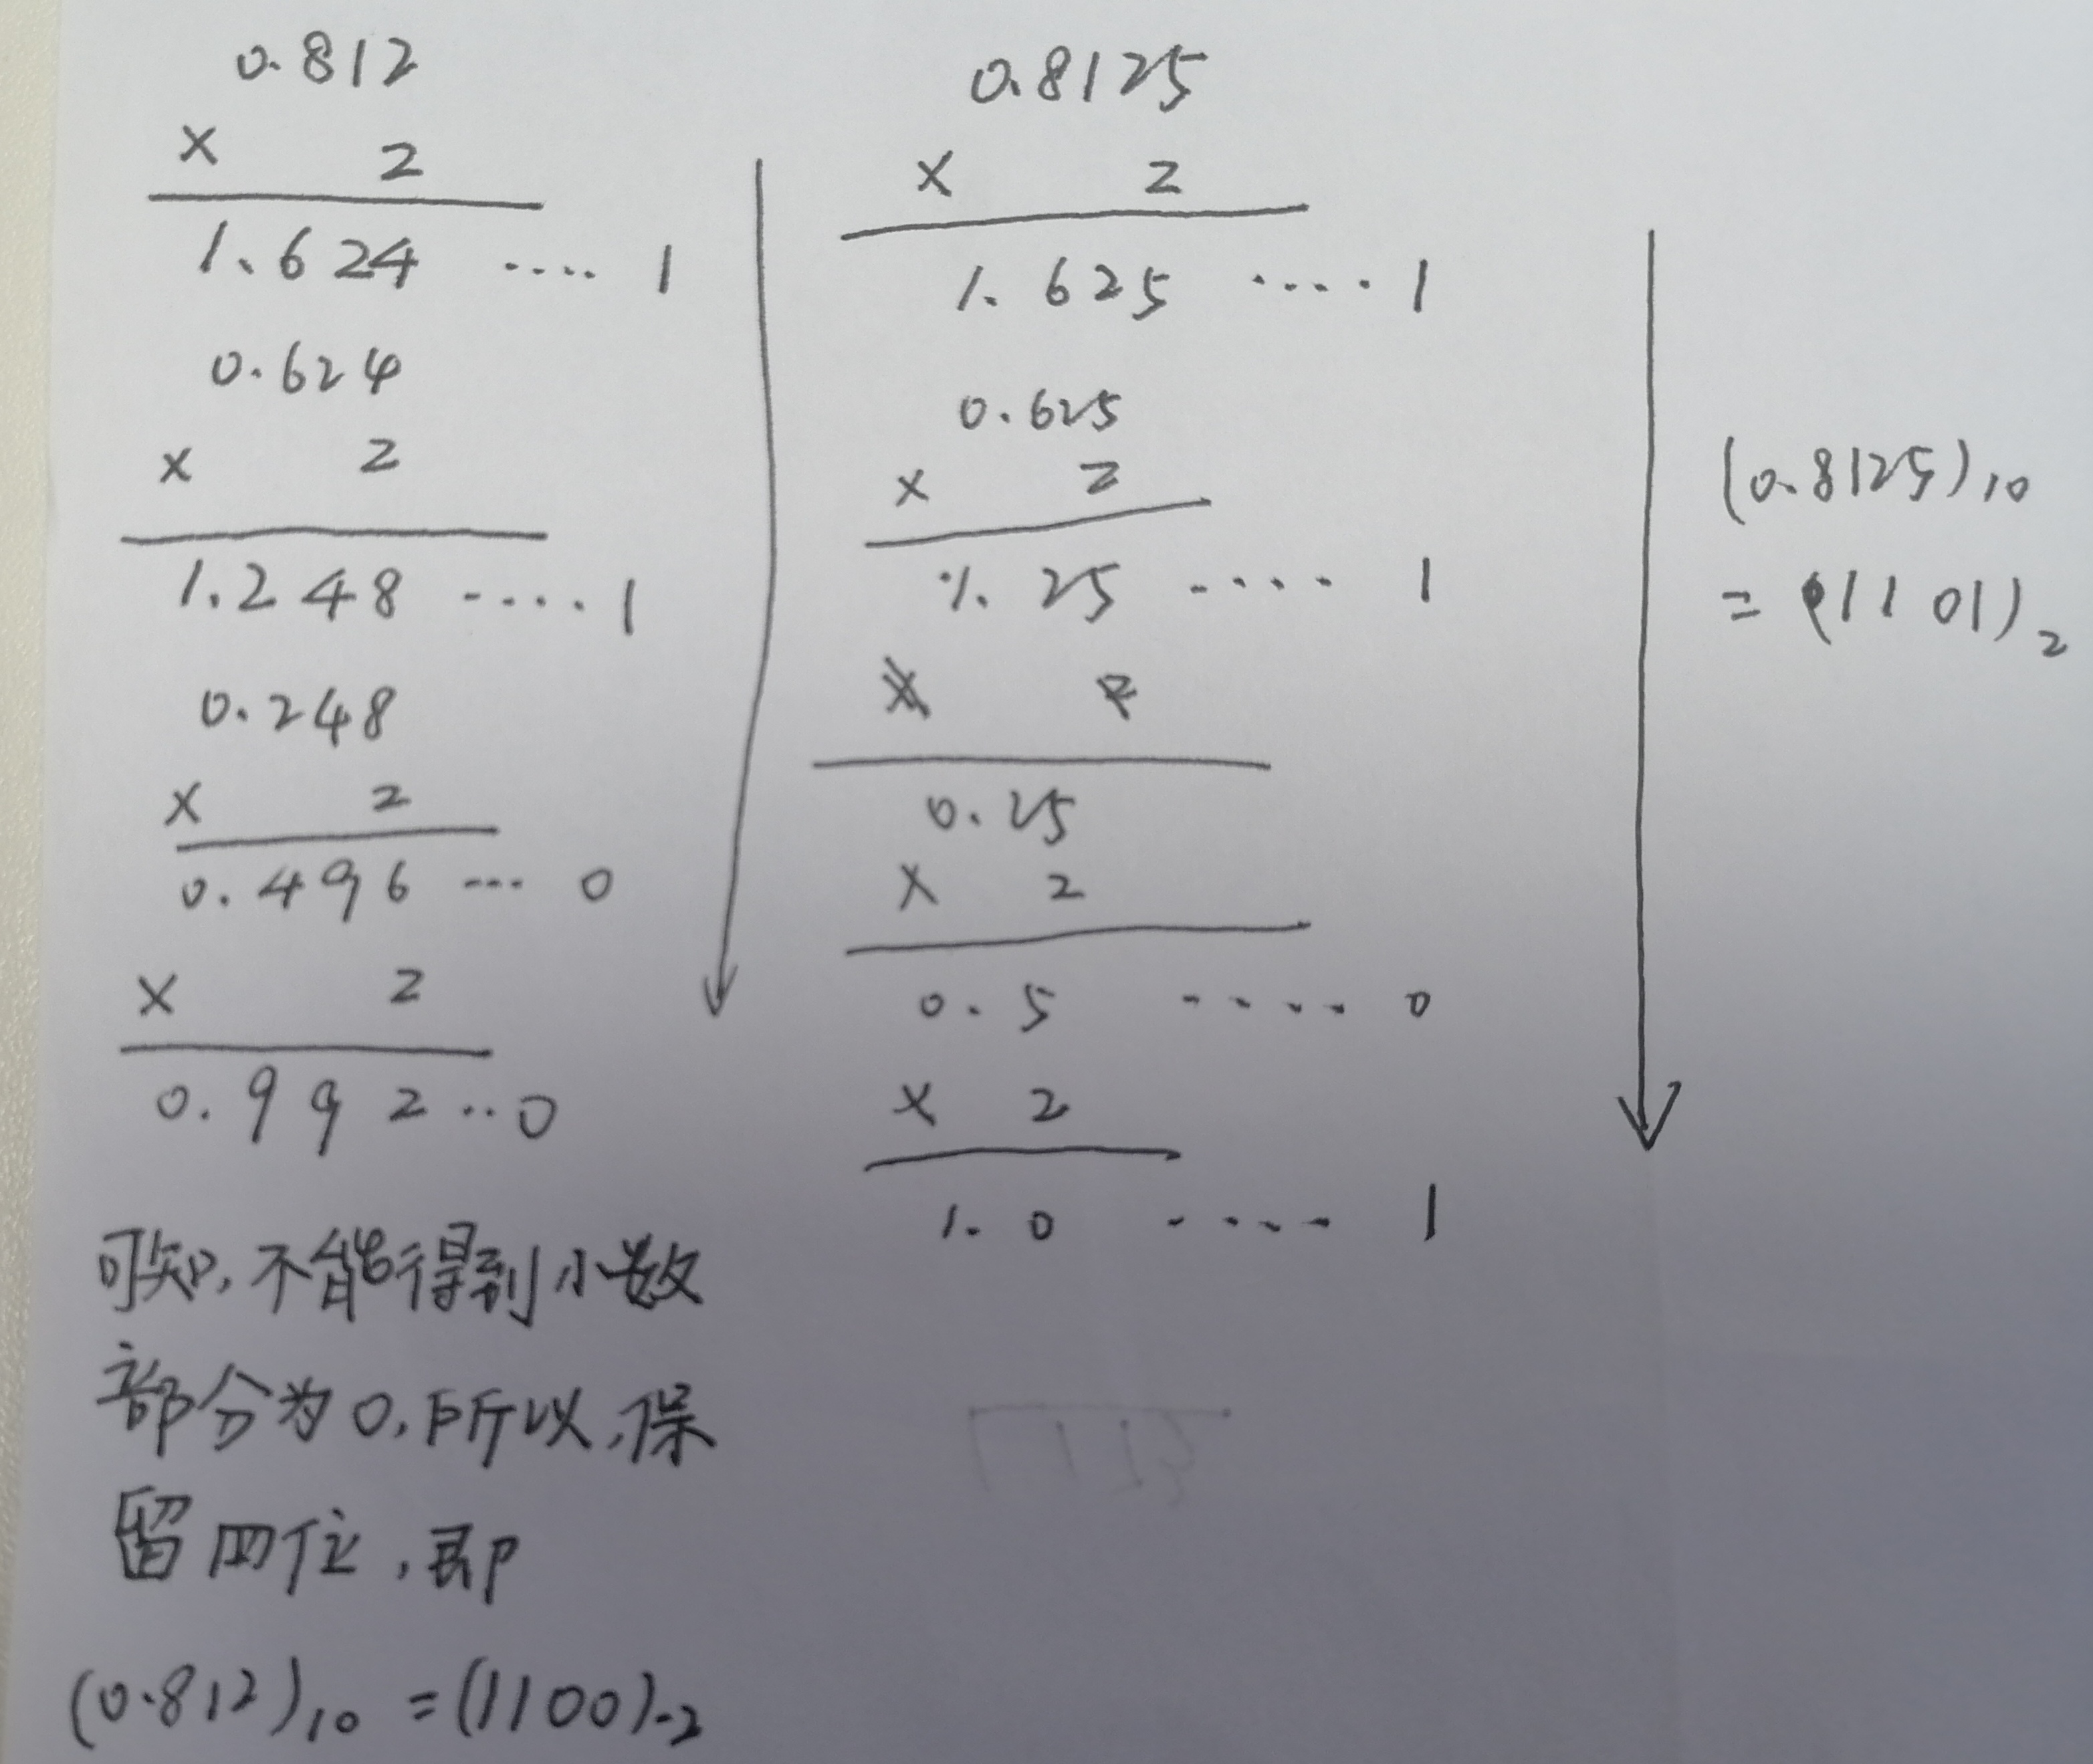 0.812
× 2
1.624 .... 1
0.624
× 2
1.248 .... 1
0.248
× 2
0.496 ... 0
× 2
0.992 .. 0
可知,不能得到小数
部分为0,所以,保
留四位,即
(0.812)10 = (1100)-2
0.8125
× 2
1.625 .... 1
0.625
× 2
1.25 .... 1
0.25
× 2
0.5 .... 0
× 2
1.0 .... 1
(0.8125)10
= (1101)2